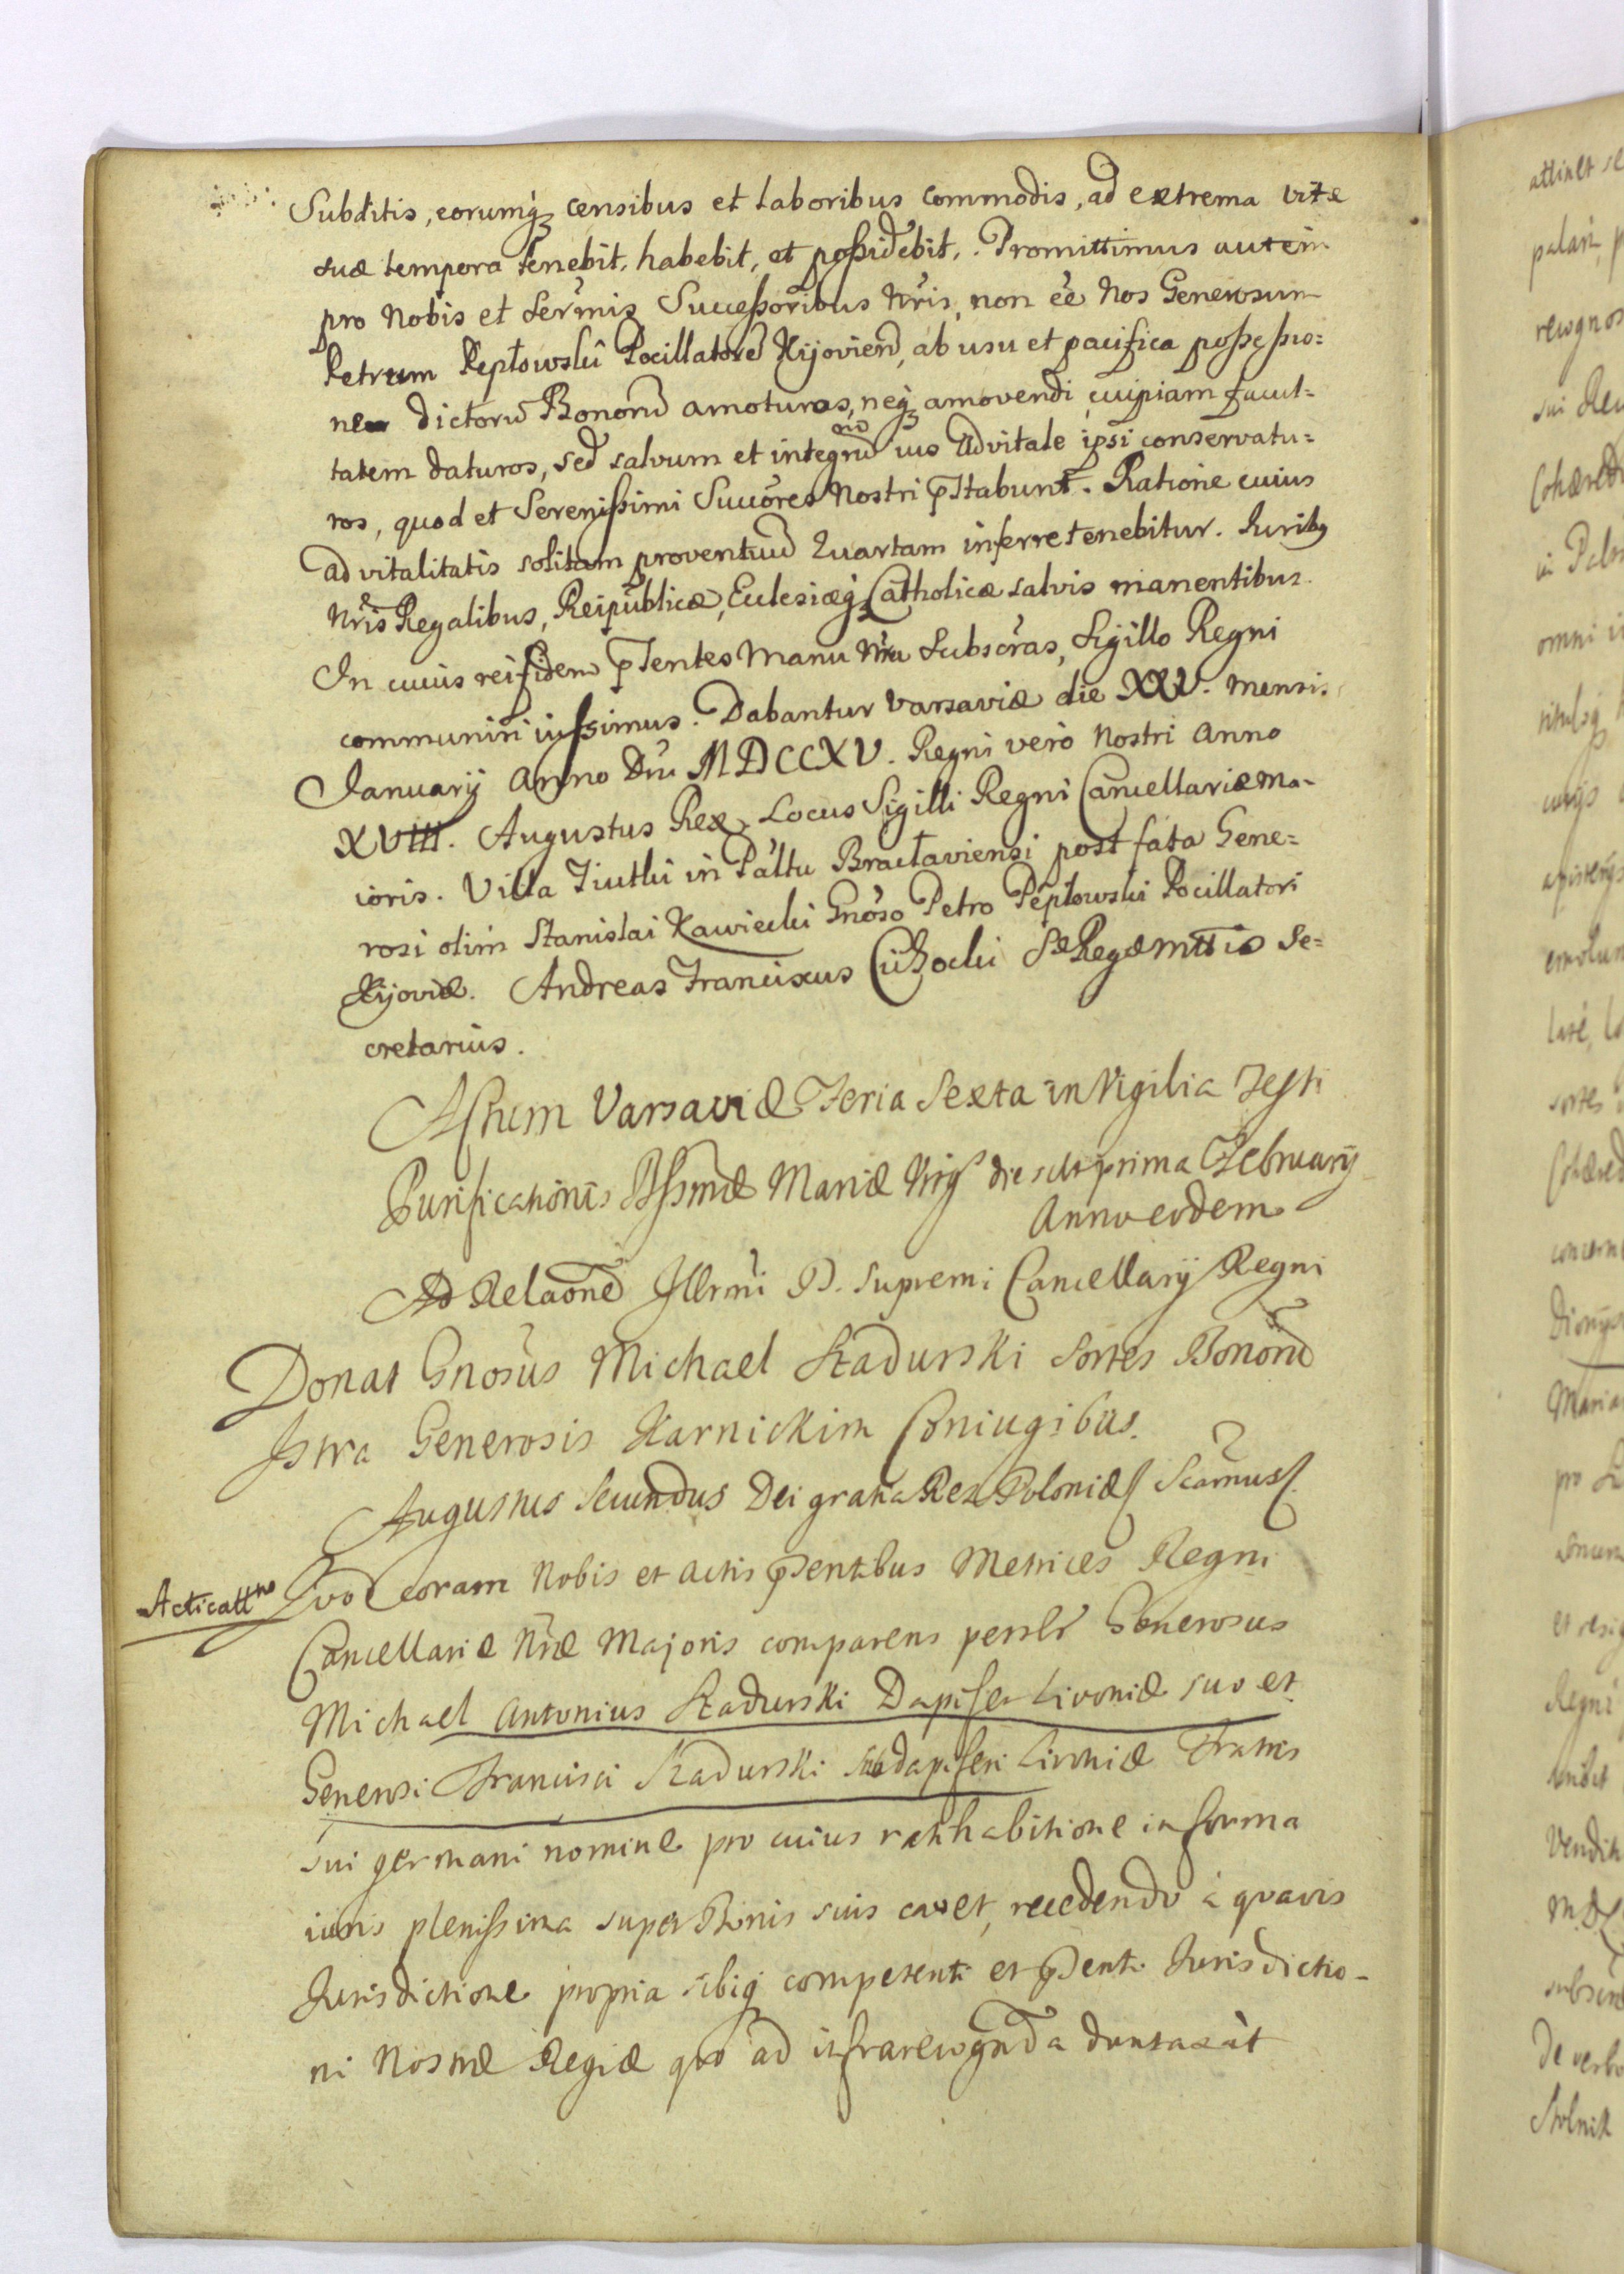 Subditis, eorumq́ꝫ censibus et laboribus commodis, ad extrema vitæ
suæ tempora tenebit, habebit, et poßidebit. Promittimus autem
pro Nobis et Sermis Suceßoribus Nris, non eè Nos Generosum
Petrum Pepłowski Pocillatore Kijovien, ab usu et pacifica poßeßio=
nem dictoru Bonoru amoturos, neqꝫ amovendi cuipiam facul=
tatem daturos, sed salvum et integru ius Advitale ipsi conservatu=
ros, quod et Serenißimi Sucóres Nostri pstabunt. Ratione cuius
advitalitatis solitam proventuu Quartam inferre tenebitur. Iuribꝫ
Nris Regalibus, Reipublicæ, Eclesiæq́ꝫ Catholicæ salvis manentibus.
In cuius rei fidem pntes Manu Nra Subscras, Sigillo Regni
communiri iussimus. Dabantur Varsaviæ die XXV. mensis
Ianuarij Anno Dni MDCCXV. Regni vero Nostri Anno
XVIII. Augustus Rex. Locus Sigilli Regni Cancellariæ Ma-
ioris. Villa Ziutki in Paltu Bracłaviensi post fata Gene=
rosi olim Stanislai Kawiecki Gnoso Petro Pepłowski Pocillatori
Kijoviæ. Andreas Franciscus Cichocki SæRegæMttis Se=
cretarius.
Actum Varsaviæ Feria Sexta in Vigilia Festi
Purificationis Bssmæ Mariæ Virgs die scl prima February
Anno eodem
Ad Relaone Illrmi D. Supremi Cancellarij Regni
Donat Gnosus Michael Szadurski Sortes Bonoru
Istra Generosis Karnickim Coniugibus.
Augustus Secundus Dei gratia Rex Poloniæ Scamus
Acticattno Quod coram Nobis et Actis psentibus Metrices Regni
Cancellariæ Nræ Majoris comparens persltr Generosus
Michael Antonius Szadurski Dapifer Livoniæ suo et
Generosi Francisci Szadurski Subdapiferi Livoniæ Fratris
sui germani nomine pro cuius ratihabitione in forma
iuris plenißima super Bonis suis cavet, recedendo à quavis
Jurisdictione propria sibiq́ competenti et psenti Jurisdictio-
ni Nostræ Regiæ quo ad infrarecognda duntaxat